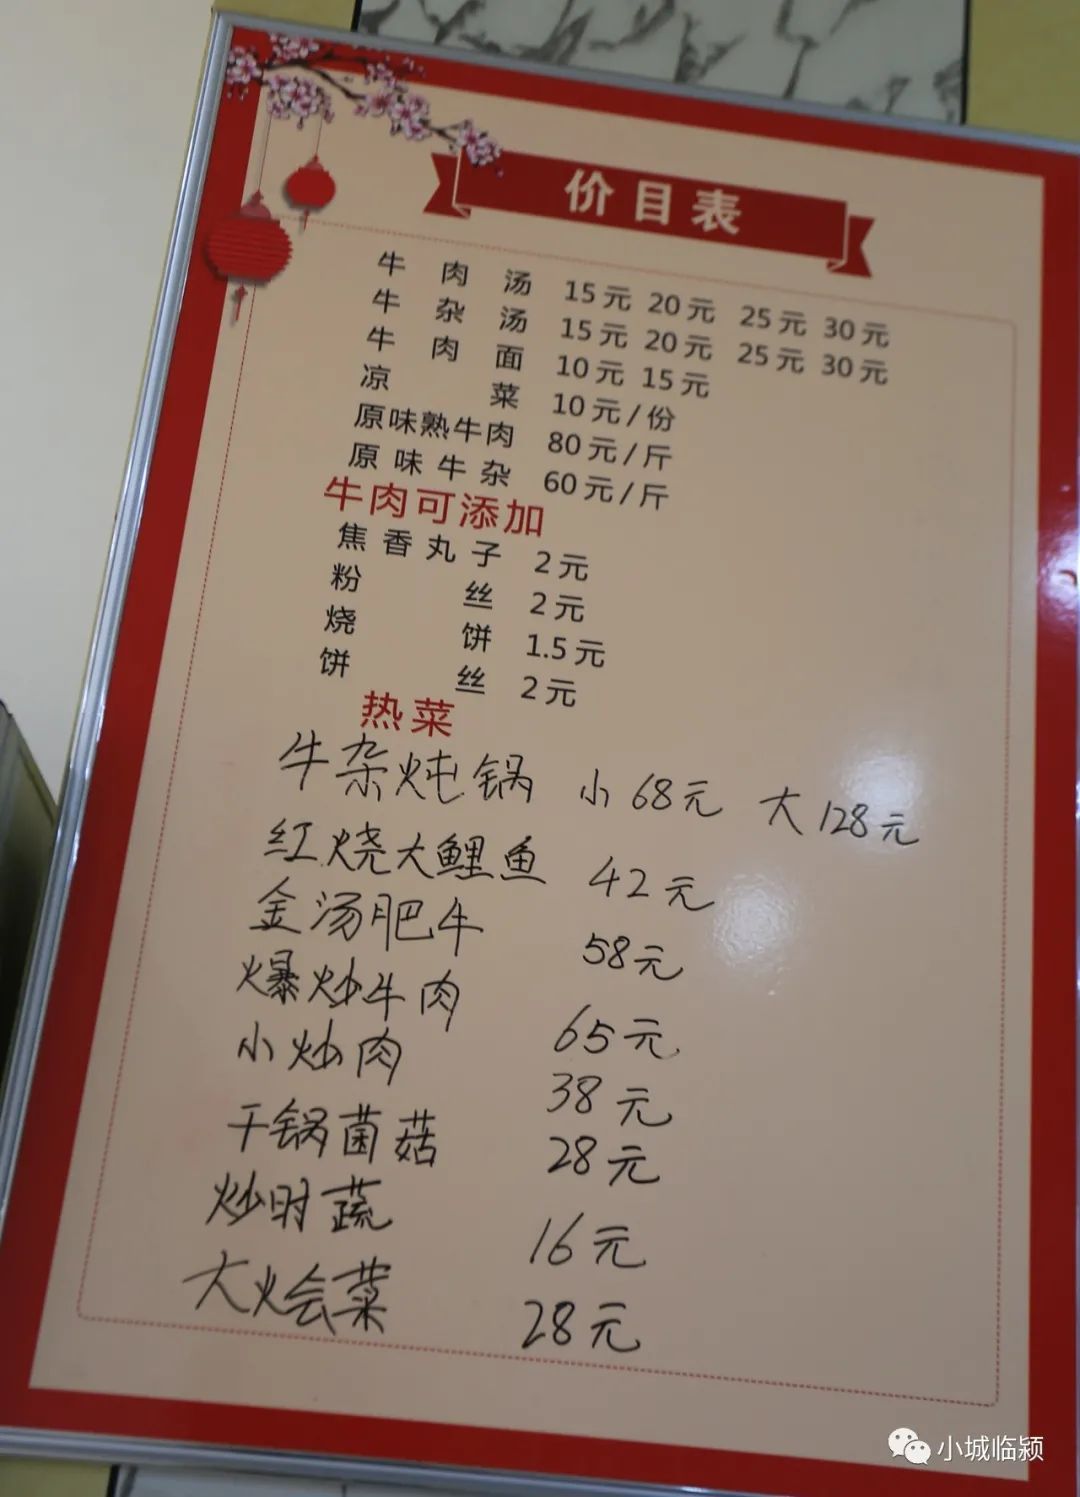 价目表
牛肉汤 15元 20元 25元 30元
牛杂汤 15元 20元 25元 30元
牛肉面 10元 15元
凉菜 10元/份
原味熟牛肉 80元/斤
原味牛杂 60元/斤
牛肉可添加
焦香丸子 2元
粉丝 2元
烧饼 1.5元
饼丝 2元
热菜
牛杂炖锅 小68元 大128元
红烧大鲤鱼 42元
金汤肥牛 58元
爆炒牛肉 65元
小炒肉 38元
干锅菌菇 28元
炒时蔬 16元
大烩菜 28元
小城临颍